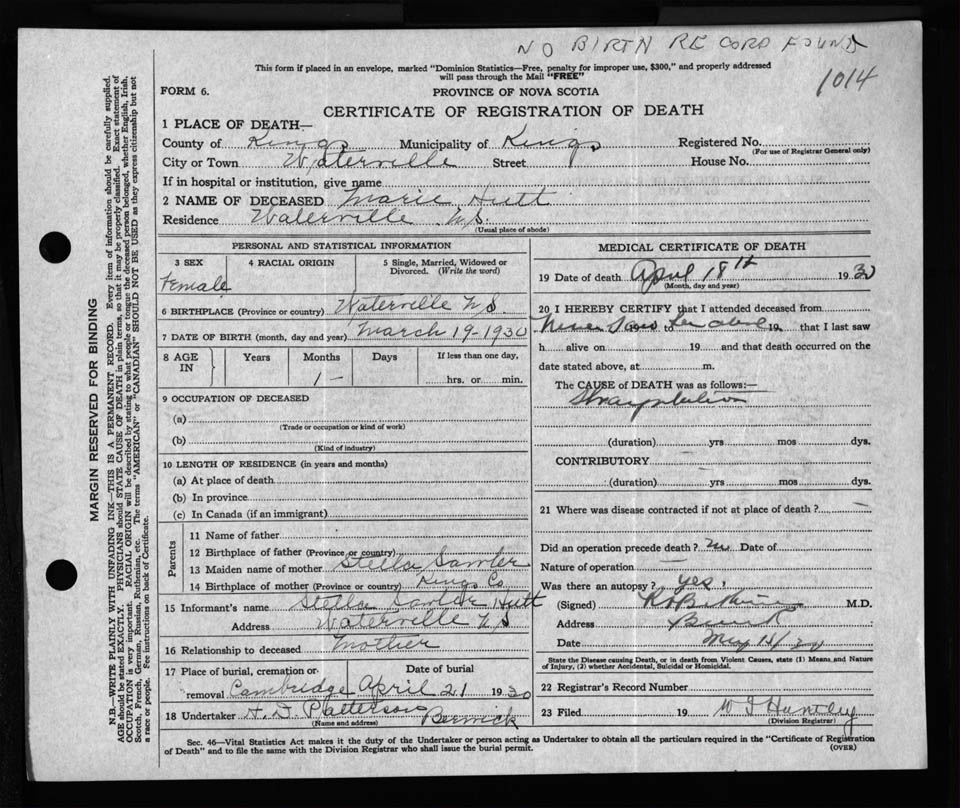 NO BIRTH RECORD FOUND
1014
This form if placed in an envelope, marked "Dominion Statistics—Free, penalty for improper use, $300," and properly addressed
will pass through the Mail "FREE"
FORM 6.
PROVINCE OF NOVA SCOTIA
CERTIFICATE OF REGISTRATION OF DEATH
1 PLACE OF DEATH—
County of Kings Municipality of Kings Registered No.
(For use of Registrar General only)
City or Town Waterville Street House No.
If in hospital or institution, give name
2 NAME OF DECEASED Marie Hutt
Residence Waterville N.S.
(Usual place of abode)
PERSONAL AND STATISTICAL INFORMATION
3 SEX 4 RACIAL ORIGIN 5 Single, Married, Widowed or
Divorced. (Write the word)
Female
6 BIRTHPLACE (Province or country) Waterville N.S.
7 DATE OF BIRTH (month, day and year) March 19-1930
8 AGE IN Years Months Days If less than one day,
1 — hrs. or min.
9 OCCUPATION OF DECEASED
(a)
(Trade or occupation or kind of work)
(b)
(Kind of industry)
10 LENGTH OF RESIDENCE (in years and months)
(a) At place of death
(b) In province
(c) In Canada (if an immigrant)
Parents
11 Name of father
12 Birthplace of father (Province or country)
13 Maiden name of mother Stella Sawler
14 Birthplace of mother (Province or country) Kings Co
15 Informant's name Stella Sawler Hutt
Address Waterville N.S
16 Relationship to deceased Mother
17 Place of burial, cremation or Date of burial
removal Cambridge April 21 1930
18 Undertaker A. D Patterson Berwick
(Name and address)
MEDICAL CERTIFICATE OF DEATH
19 Date of death April 18th 1930
(Month, day and year)
20 I HEREBY CERTIFY that I attended deceased from
Never Saw 19 to her alive 19 that I last saw
h alive on 19 and that death occurred on the
date stated above, at m.
The CAUSE of DEATH was as follows:—
(duration) yrs mos dys.
CONTRIBUTORY
(duration) yrs mos dys.
21 Where was disease contracted if not at place of death?
Did an operation precede death? no Date of
Nature of operation
Was there an autopsy? yes.
(Signed) M.D.
Address
Date May
State the Disease causing Death, or in death from Violent Causes, state (1) Means and Nature
of Injury, (2) whether Accidental, Suicidal or Homicidal.
22 Registrar's Record Number
23 Filed 19 W I Huntley
(Division Registrar)
Sec. 46—Vital Statistics Act makes it the duty of the Undertaker or person acting as Undertaker to obtain all the particulars required in the "Certificate of Registration
of Death" and to file the same with the Division Registrar who shall issue the burial permit.
(OVER)
MARGIN RESERVED FOR BINDING
N.B.—WRITE PLAINLY WITH UNFADING INK—THIS IS A PERMANENT RECORD. Every item of information should be carefully supplied.
AGE should be stated EXACTLY. PHYSICIANS should STATE CAUSE OF DEATH in plain terms, so that it may be properly classified. Exact statement of
OCCUPATION is very important. RACIAL ORIGIN will be described by stating to what people or tongue the deceased person belonged, whether English, Irish,
Scotch, French, German, Russian, Ruthenian, etc. The terms "AMERICAN" or "CANADIAN" SHOULD NOT BE USED as they express citizenship but not
a race or people. See instructions on back of Certificate.